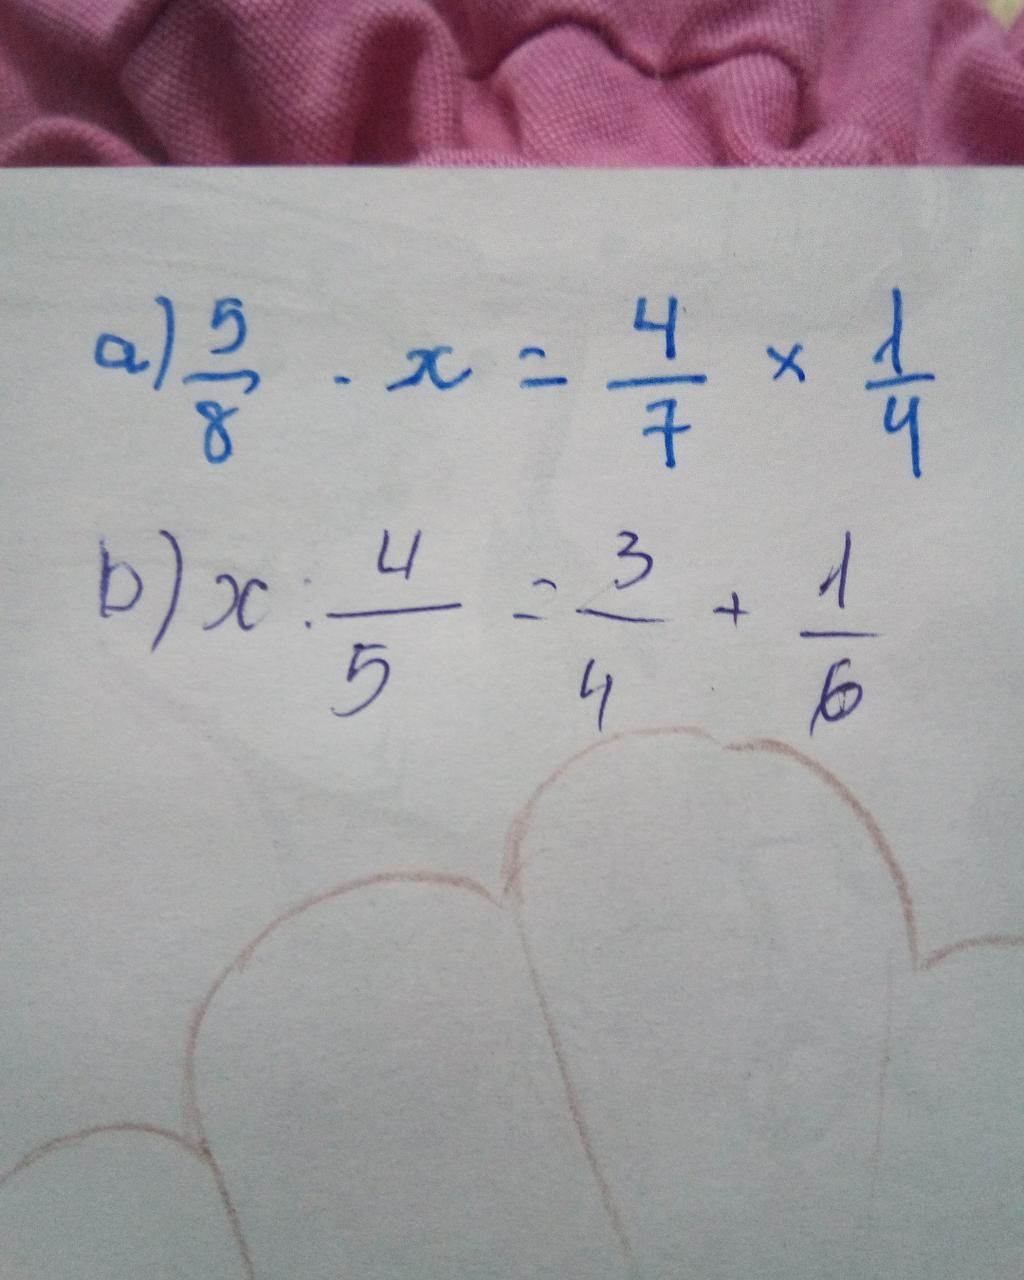 a) 5/8 - x = 4/7 × 1/4
b) x : 4/5 = 3/4 + 1/6